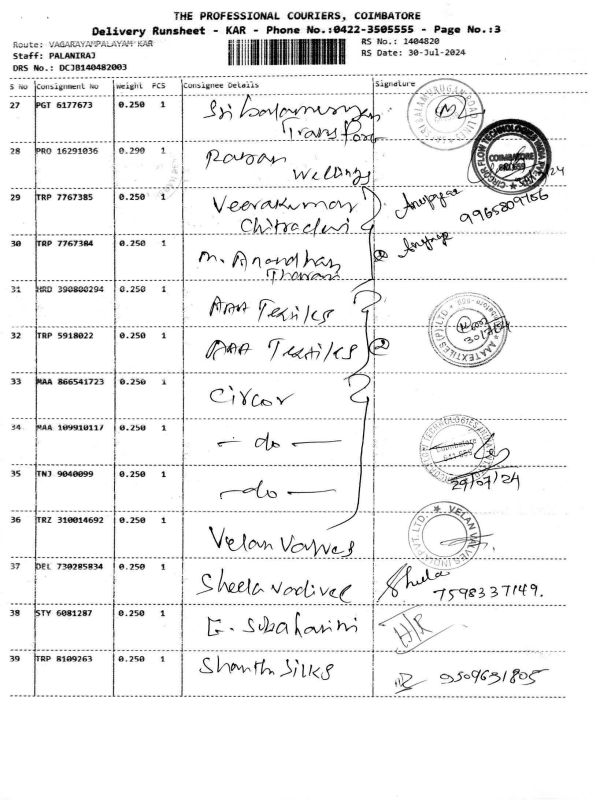 THE PROFESSIONAL COURIERS, COIMBATORE
Delivery Runsheet - KAR - Phone No.:0422-3505555 - Page No.:3
Route: VAGARAYAMPALAYAM KAR
RS No.: 1404820
Staff: PALANIRAJ
RS Date: 30-Jul-2024
DRS No.: DCJB140482003
S No Consignment No weight PCS Consignee Details Signature
27 PGT 6177673 0.250 1 Sri balamurugan
Transport
28 PRO 16291036 0.290 1 Rajan
Weldings
COIMBATORE
29 TRP 7767385 0.250 1 Veerakumar
Chitradevi
9965809156
30 TRP 7767384 0.250 1 M. Anandhan
31 HRD 390800294 0.250 1 AAA Textiles
32 TRP 5918022 0.250 1 AAA Textiles 2
30/7/24
33 MAA 866541723 0.250 1 Circor
34 MAA 109910117 0.250 1 - do -
Coimbatore
35 TNJ 9040099 0.250 1 - do -
29/07/24
36 TRZ 310014692 0.250 1 Velan Valves
VELAN VALVES INDIA PVT. LTD.
37 DEL 730285834 0.250 1 Sheela Vadivel Sheela
7598337149.
38 STY 6081287 0.250 1 E. Subaharini
39 TRP 8109263 0.250 1 Shanthi Silks 9509631805